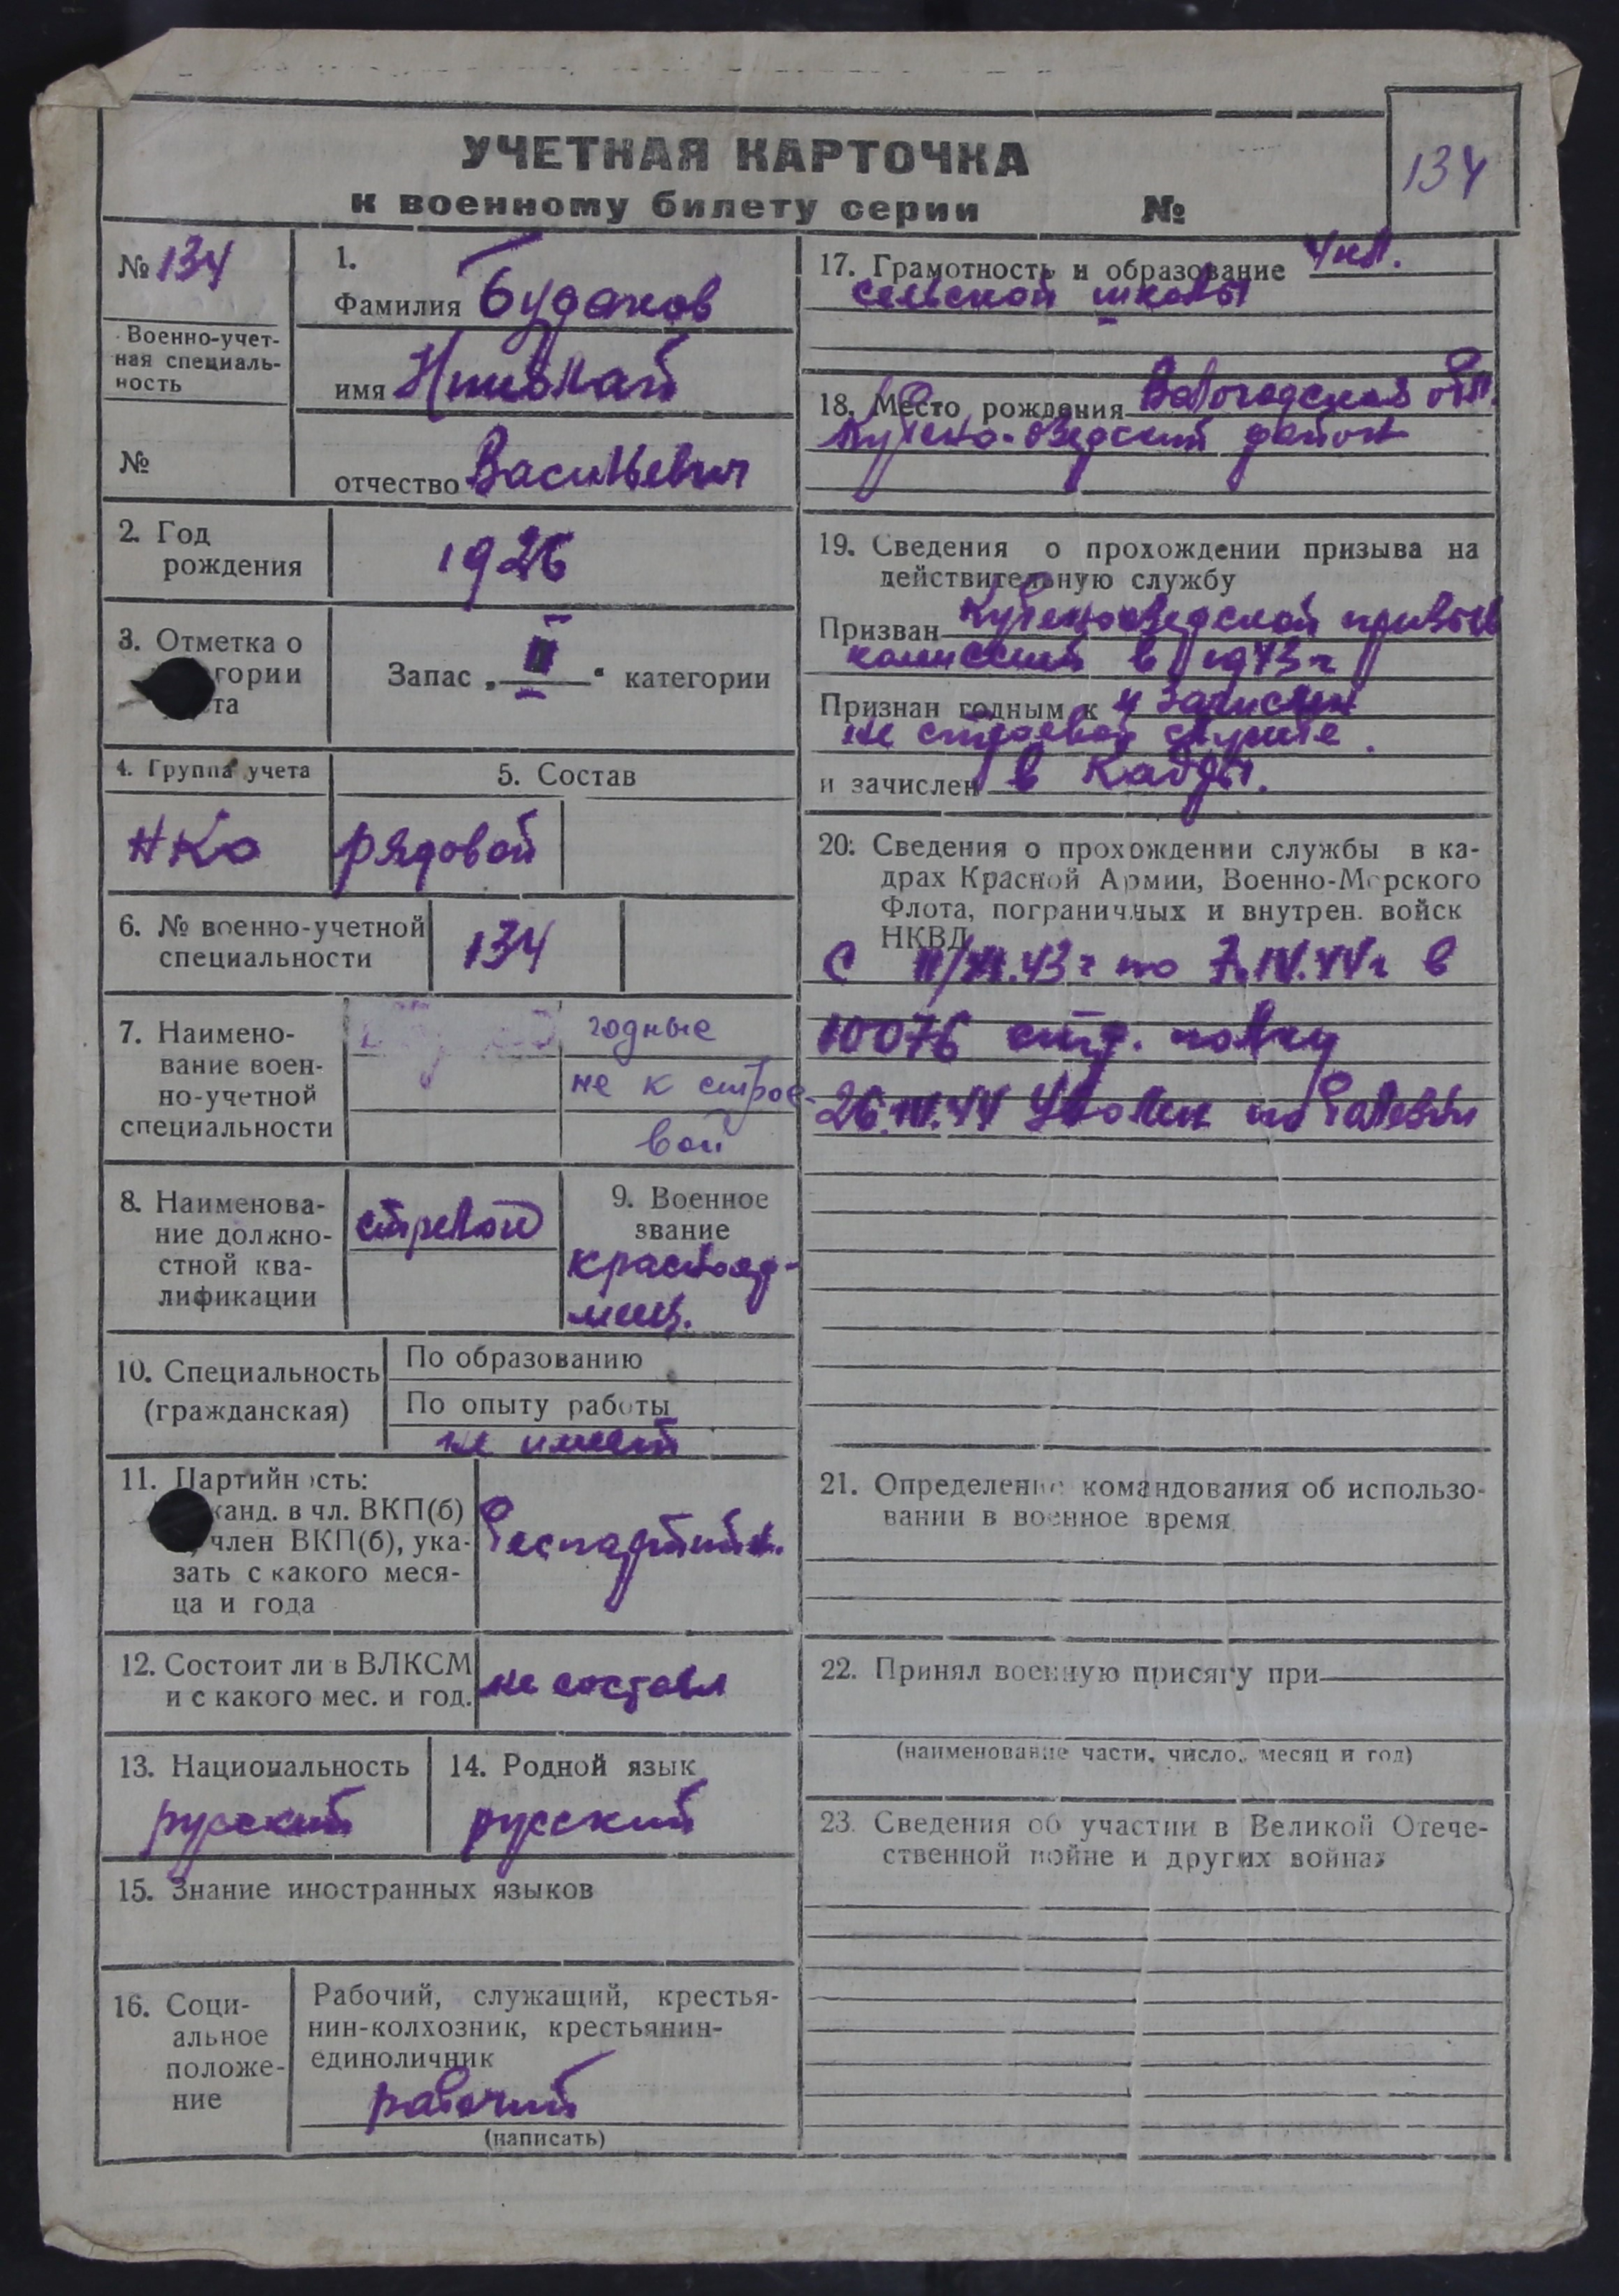 УЧЕТНАЯ КАРТОЧКА
к военному билету серии №
134
№ 134
Военно-учет-
ная специаль-
ность
№
1.
Фамилия Будаков
имя Николай
отчество Васильевич
2. Год
рождения
1926
3. Отметка о
гории
та
Запас „ III “ категории
4. Группа учета
НКО
5. Состав
рядовой
6. № военно-учетной
специальности
134
7. Наимено-
вание воен-
но-учетной
специальности
годные
не к строе-
вой
8. Наименова-
ние должно-
стной ква-
лификации
9. Военное
звание
красноар-
меец.
10. Специальность
(гражданская)
По образованию
По опыту работы
не имеет
11. Партийность:
канд. в чл. ВКП(б)
член ВКП(б), ука-
зать с какого меся-
ца и года
беспартийн.
12. Состоит ли в ВЛКСМ
и с какого мес. и год.
не состоял
13. Национальность
русский
14. Родной язык
русский
15. Знание иностранных языков
16. Соци-
альное
положе-
ние
Рабочий, служащий, крестья-
нин-колхозник, крестьянин-
единоличник
рабочий
(написать)
17. Грамотность и образование 4 кл.
сельской школы
18. Место рождения Вологодская обл.
Кубено-Озерский район
19. Сведения о прохождении призыва на
действительную службу
Призван Кубеноозерской призыв
комиссией в 1943 г
Признан годным к и зачислен
не строевой службе.
и зачислен в кадры.
20. Сведения о прохождении службы в ка-
драх Красной Армии, Военно-Морского
Флота, пограничных и внутрен. войск
НКВД
С 11/XI.43 г по 7.IV.44 г в
10076 стр. полку
26.IV.44 Уволен по болезни
21. Определение командования об использо-
вании в военное время
22. Принял военную присягу при
(наименование части, число, месяц и год)
23. Сведения об участии в Великой Отече-
ственной войне и других войнах